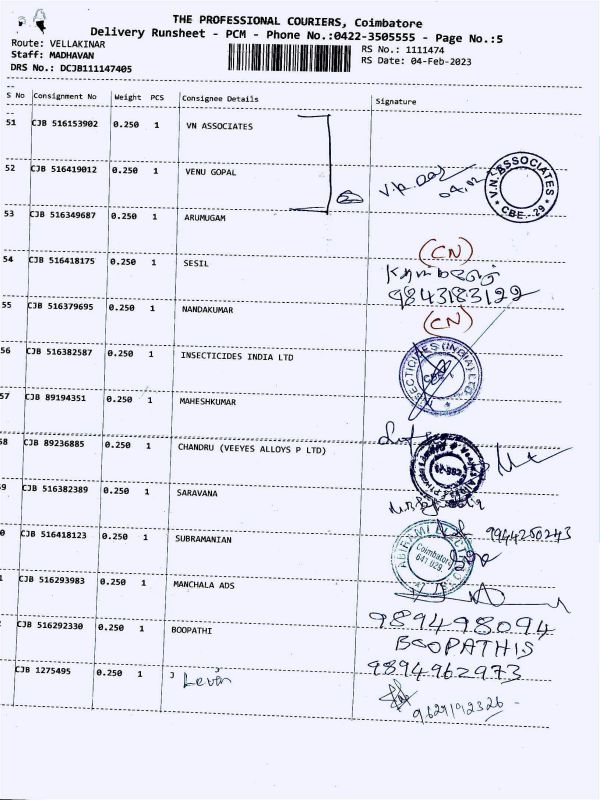 THE PROFESSIONAL COURIERS, Coimbatore
Delivery Runsheet - PCM - Phone No.:0422-3505555 - Page No.:5
Route: VELLAKINAR
RS No.: 1111474
Staff: MADHAVAN
RS Date: 04-Feb-2023
DRS No.: DCJB111147405
S No Consignment No Weight PCS Consignee Details Signature
51 CJB 516153902 0.250 1 VN ASSOCIATES
52 CJB 516419012 0.250 1 VENU GOPAL
V.N. ASSOCIATES
CBE - 29
53 CJB 516349687 0.250 1 ARUMUGAM
(CN)
54 CJB 516418175 0.250 1 SESIL
9843183122
55 CJB 516379695 0.250 1 NANDAKUMAR
(CN)
56 CJB 516382587 0.250 1 INSECTICIDES INDIA LTD
INSECTICIDES (INDIA) LTD.
CBE
57 CJB 89194351 0.250 1 MAHESHKUMAR
58 CJB 89236885 0.250 1 CHANDRU (VEEYES ALLOYS P LTD)
9 CJB 516382389 0.250 1 SARAVANA
0 CJB 516418123 0.250 1 SUBRAMANIAN
9944250243
Coimbatore
641 029
1 CJB 516293983 0.250 1 MANCHALA ADS
9894498094
2 CJB 516292330 0.250 1 BOOPATHI
BOOPATHIS
9894962973
CJB 1275495 0.250 1
9629192326